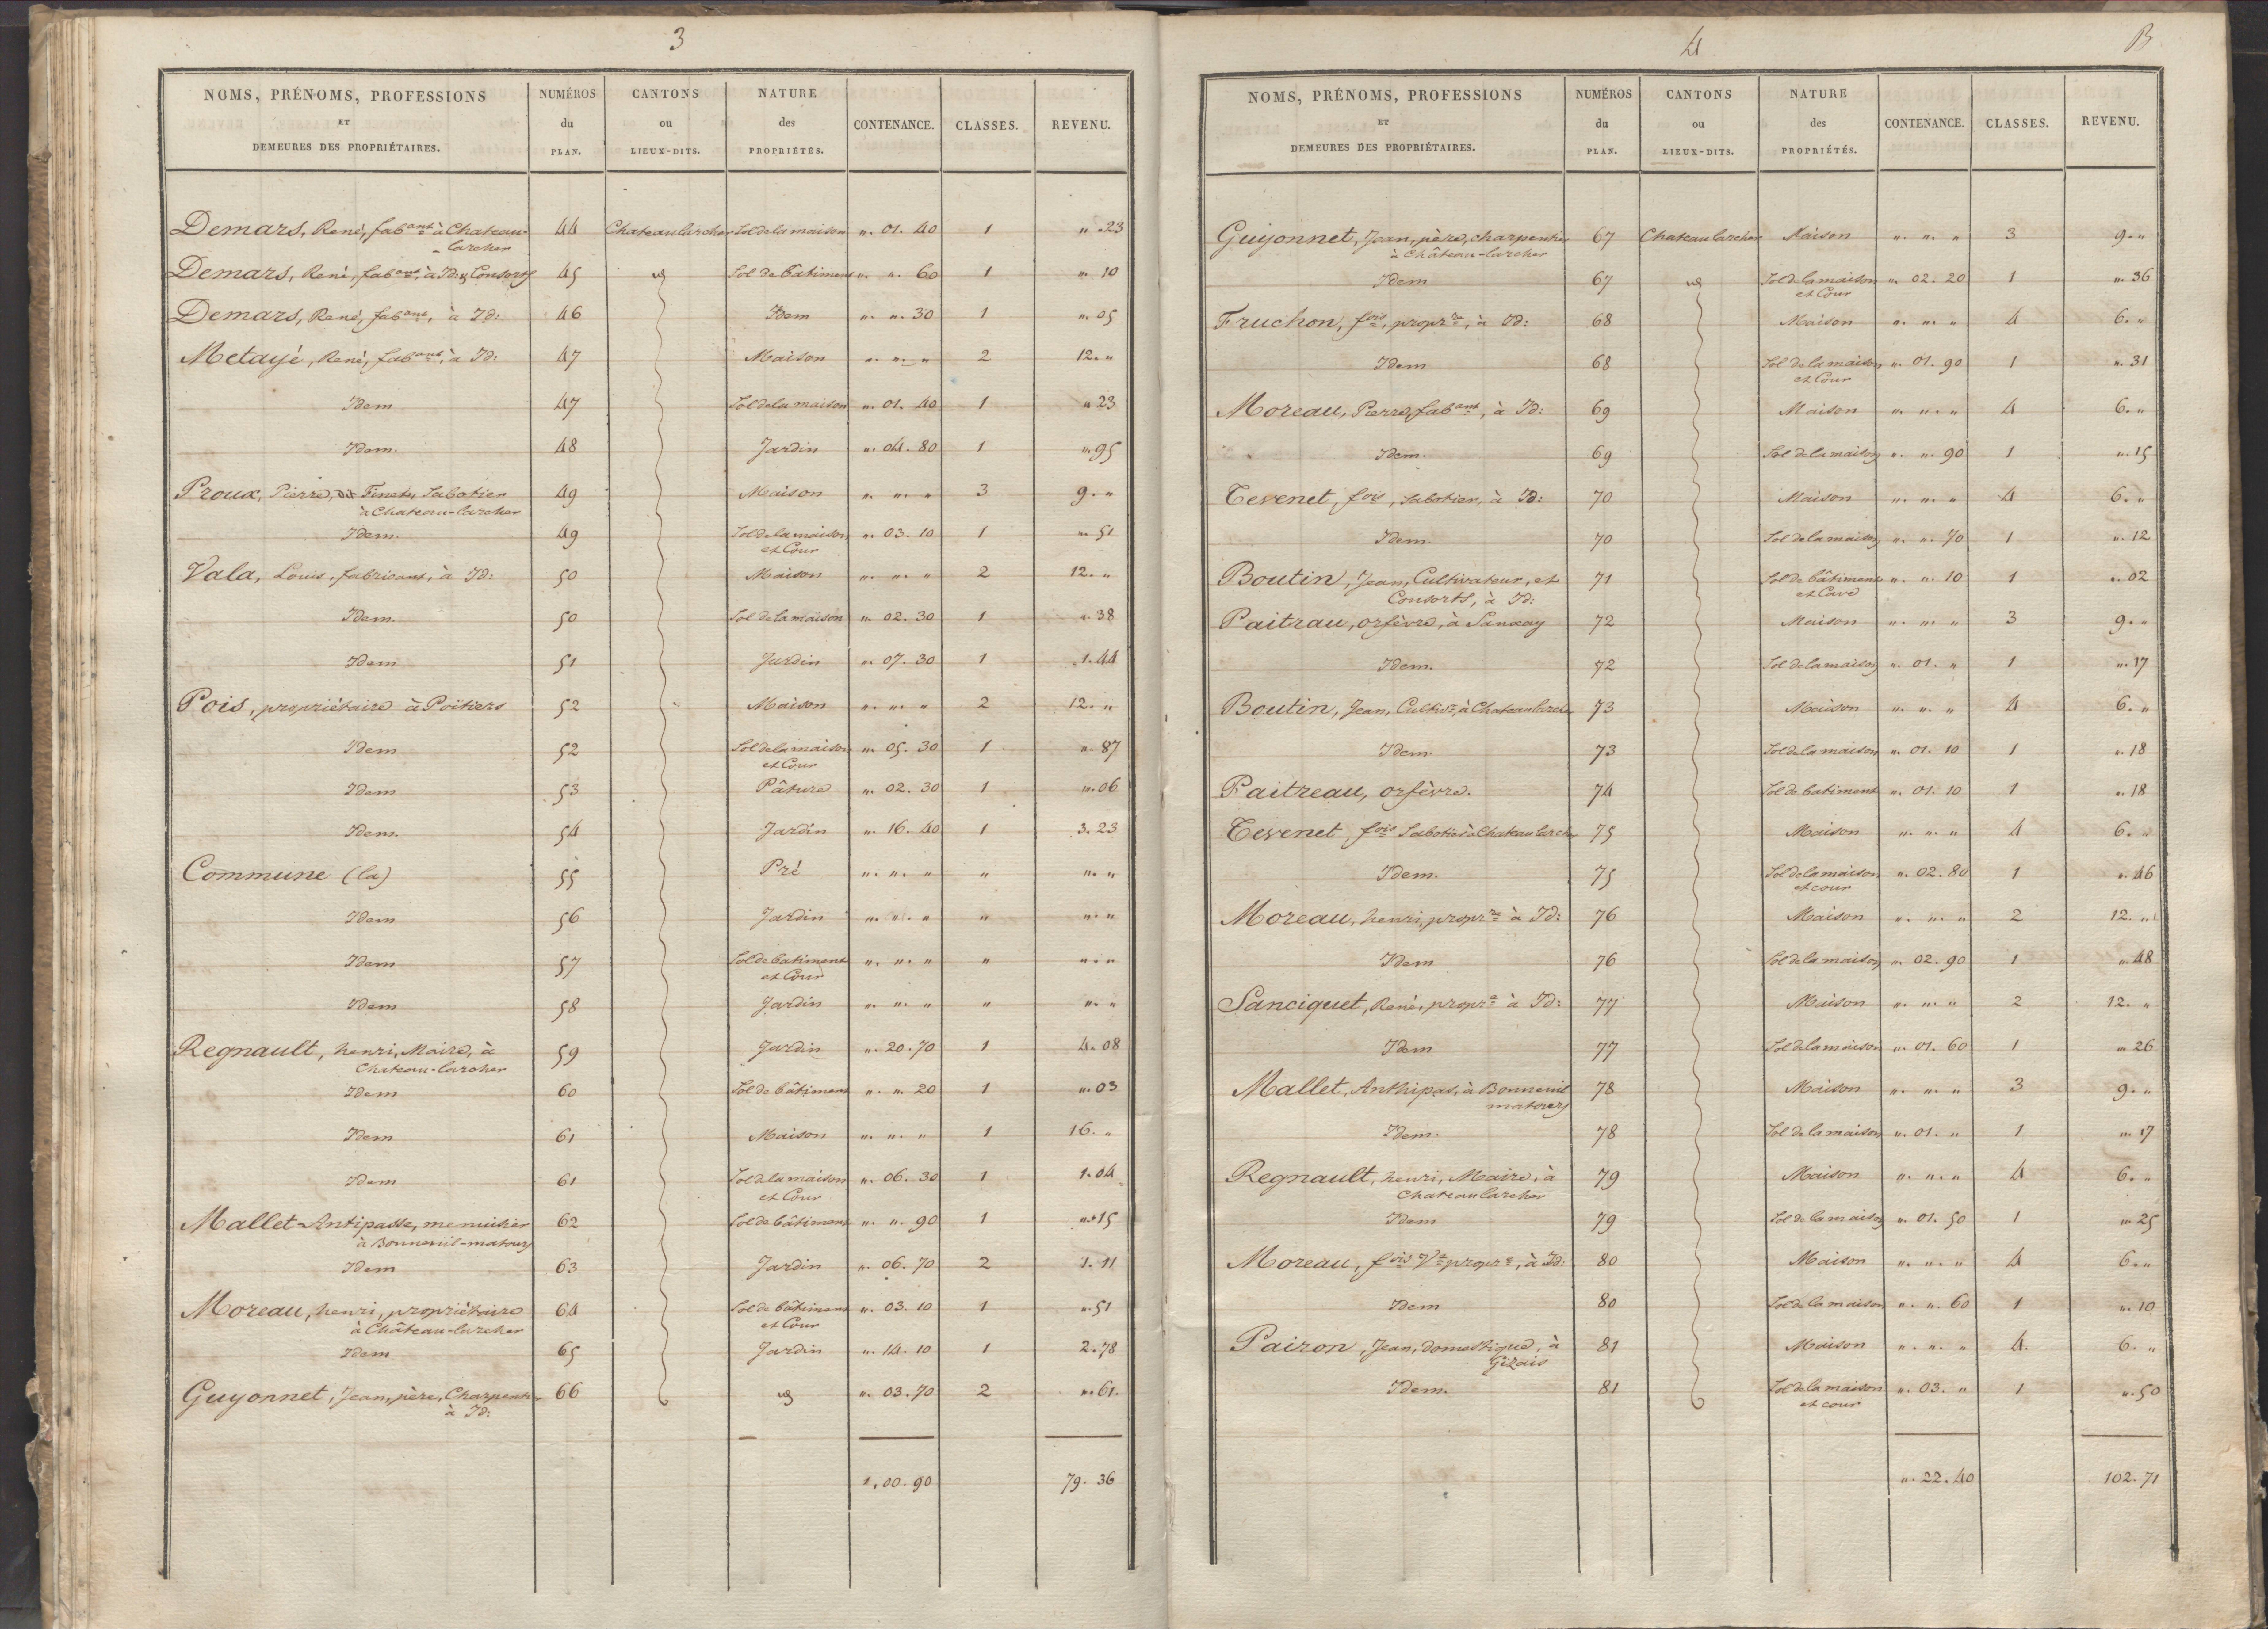 3
NOMS, PRÉNOMS, PROFESSIONS ET DEMEURES DES PROPRIÉTAIRES. NUMÉROS du PLAN. CANTONS ou LIEUX-DITS. NATURE des PROPRIÉTÉS. CONTENANCE. CLASSES. REVENU.
Demars, René, fabant à Chateau- 44 Chateaularcher Sol de la maison ". 01. 40 1 ". 23
-larcher
Demars, René, fabant, à Id: & Consorts 45 id Sol de batiment ". ". 60 1 ". 10
Demars, René, fabant, à Id: 46 Idem ". ". 30 1 ". 05
Metayé, René, fabant, à Id: 47 Maison ". ". " 2 12. "
Idem 47 Sol de la maison ". 01. 40 1 " 23
Idem. 48 Jardin ". 04. 80 1 ". 95
Proux, Pierre, dit Finet, Sabotier 49 Maison ". ". " 3 9. "
à Chateau-larcher
Idem. 49 Sol de la maison ". 03. 10 1 ". 51
et Cour
Vala, Louis, fabricant, à Id: 50 Maison ". ". " 2 12. "
Idem. 50 Sol de la maison ". 02. 30 1 ". 38
Idem 51 Jardin ". 07. 30 1 1. 44
Pois, propriétaire à Poitiers 52 Maison ". ". " 2 12. "
Idem 52 Sol de la maison ". 05. 30 1 ". 87
et Cour
Idem 53 Pâture ". 02. 30 1 ". 06
Idem. 54 Jardin ". 16. 40 1 3. 23
Commune (la) 55 Pré ". ". " " ". "
Idem 56 Jardin ". ". " " ". "
Idem 57 Sol de batiment ". ". " " ". "
et Cour
Idem 58 Jardin ". ". " " ". "
Regnault, henri, Maire, à 59 Jardin ". 20. 70 1 4. 08
Chateau-larcher
Idem 60 Sol de bâtiment ". ". 20 1 ". 03
Idem 61 Maison ". ". " 1 16. "
Idem 61 Sol de la maison ". 06. 30 1 1. 04
et Cour
Mallet Antipasse, menuisier 62 Sol de bâtiment ". ". 90 1 ". 15
à Bonneuil-matours
Idem 63 Jardin ". 06. 70 2 1. 11
Moreau, henri, propriétaire 64 Sol de bâtiment ". 03. 10 1 ". 51
à Château-larcher et Cour
Idem 65 Jardin ". 14. 10 1 2. 78
Guyonnet, Jean, père, Charpentier 66 id ". 03. 70 2 ". 61.
à Id:
1. 00. 90 79. 36
4 B
NOMS, PRÉNOMS, PROFESSIONS ET DEMEURES DES PROPRIÉTAIRES. NUMÉROS du PLAN. CANTONS ou LIEUX-DITS. NATURE des PROPRIÉTÉS. CONTENANCE. CLASSES. REVENU.
Guyonnet, Jean, père, charpentier 67 Chateaularcher Maison ". ". " 3 9. "
à Château-larcher
Idem 67 id Sol de la maison ". 02. 20 1 ". 36
et Cour
Fruchon, fois, proprre, à Id: 68 Maison ". ". " 4 6. "
Idem 68 Sol de la maison ". 01. 90 1 ". 31
et Cour
Moreau, Pierre, fabant, à Id: 69 Maison ". ". " 4 6. "
Idem. 69 Sol de la maison ". ". 90 1 ". 15
Tevenet, fois, Sabotier, à Id: 70 Maison ". ". " 4 6. "
Idem. 70 Sol de la maison ". ". 70 1 ". 12
Boutin, Jean, Cultivateur, et 71 Sol de bâtiment ". ". 10 1 ". 02
Consorts, à Id: et Cave
Paitrau, orfèvre, à Sanxay 72 Maison ". ". " 3 9. "
Idem. 72 Sol de la maison ". 01. " 1 ". 17
Boutin, Jean, Cultivr, à Chateaularcher 73 Maison ". ". " 4 6. "
Idem. 73 Sol de la maison ". 01. 10 1 ". 18
Paitreau, orfèvre. 74 Sol de batiment ". 01. 10 1 ". 18
Tevenet, fois Sabotier à Chateaularcher 75 Maison ". ". " 4 6. "
Idem. 75 Sol de la maison ". 02. 80 1 ". 46
et cour
Moreau, henri, proprre à Id: 76 Maison ". ". " 2 12. "
Idem 76 Sol de la maison ". 02. 90 1 ". 48
Sanciquet, René, propre à Id: 77 Maison ". ". " 2 12. "
Idem 77 Sol de la maison ". 01. 60 1 " 26
Mallet, Anthipas, à Bonneuil 78 Maison ". ". " 3 9. "
matours
Idem. 78 Sol de la maison ". 01. " 1 ". 17
Regnault, henri, Maire, à 79 Maison ". ". " 4 6. "
Chateaularcher
Idem 79 Sol de la maison ". 01. 50 1 " 25
Moreau, fois Ve propre, à Id: 80 Maison ". ". " 4 6. "
Idem 80 Sol de la maison ". ". 60 1 ". 10
Pairon, Jean, domestique, à 81 Maison ". ". " 4. 6. "
Gizais
Idem. 81 Sol de la maison ". 03. " 1 ". 50
et cour
". 22. 40 102. 71